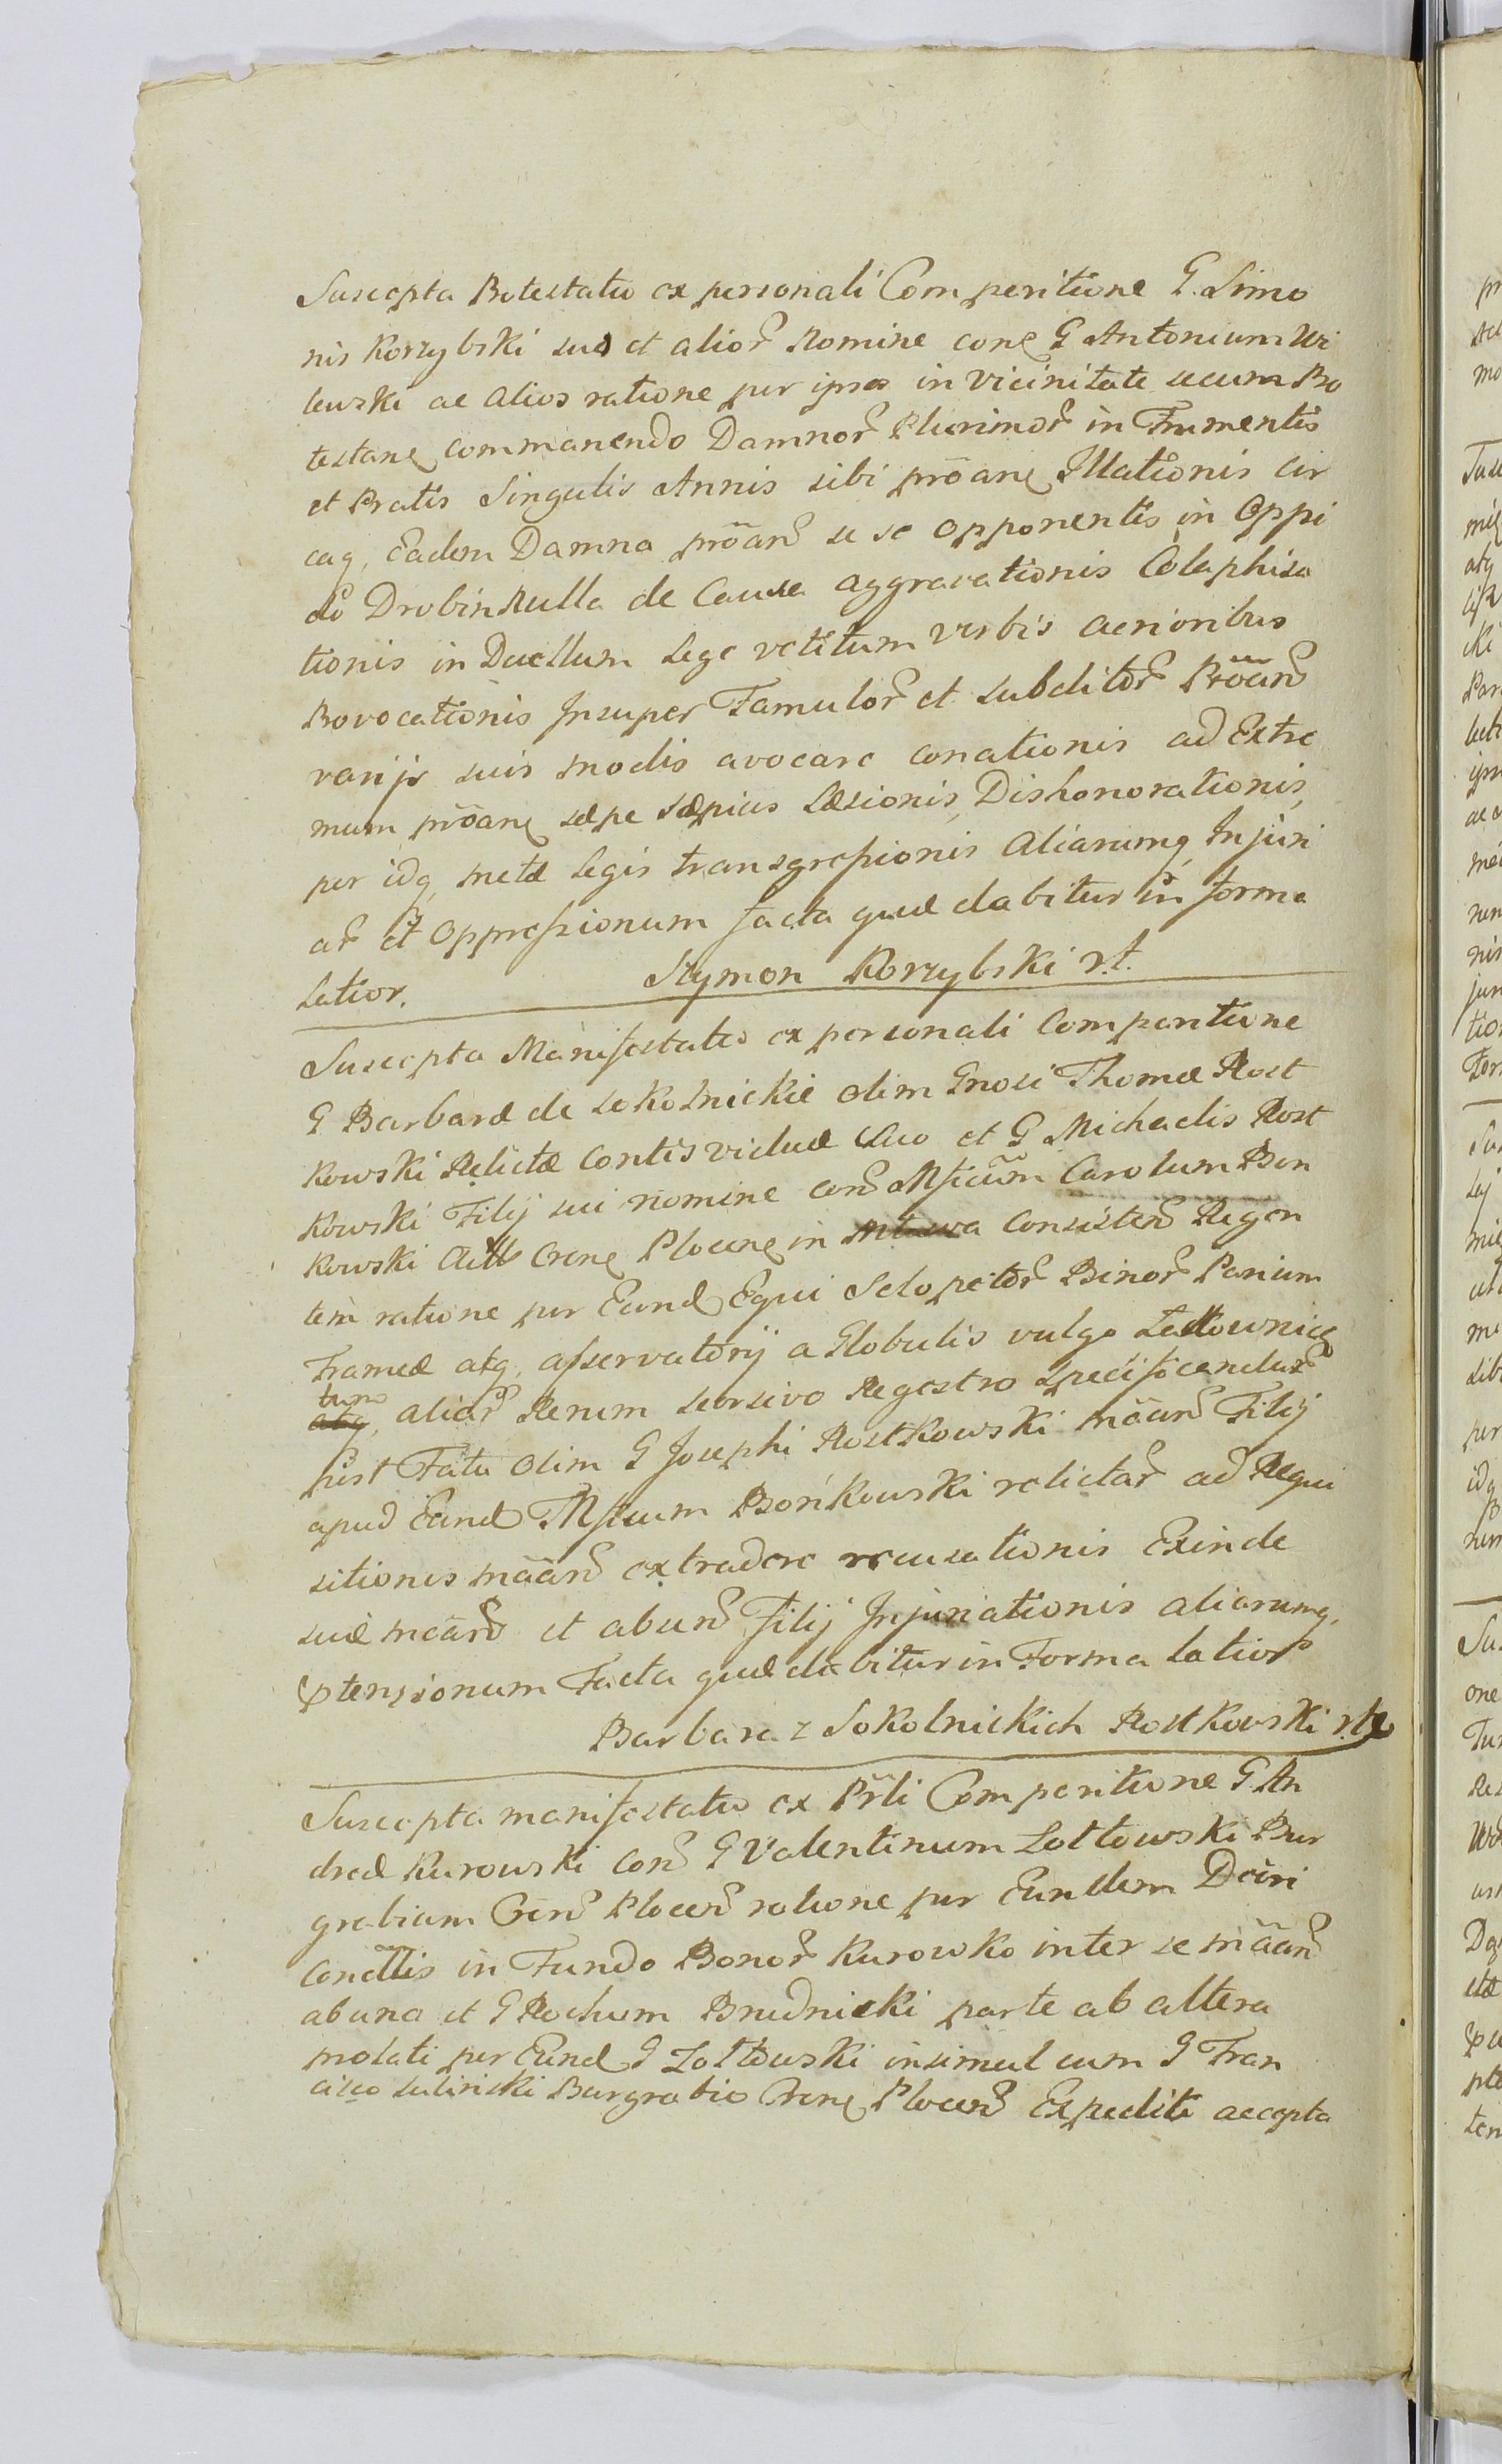 Suscepta Protestatio ex personali Comparitione G. Simo
nis Korzybski suo et alior̃ Nomine cone G Antonium Wi
lewski ac alios ratione per ipsos in vicinitate secum Pro
testane commanendo Damnor̃ Plurimor̃ in Frumentis
et Pratis Singulis Annis sibi prõane Illationis cir
caq, Eadem Damna prõañ se se opponentis in Oppi
do Drobin Nulla de Causa aggravationis Colaphisa
tionis in Duellum Lege vetitum verbis acrioribus
Provocationis Insuper Famulor̃ et subditor̃ Prõañ
varijs suis modis avocare conationis ad Extre
mum prõane sæpe sæpius Læsionis, Dishonorationis,
per idq, metæ Legis transgressionis Aliarumq, Injuri
ar̃ et Oppressionum facta quæ dabitur in forma
Latior.
Szymon Korzybski r.t.
Suscepta Manifestatio ex personali Comparitione
G Barbaræ de Sokolnickie olim Gnosi Thomæ Rost
kowski Relictæ Contis viduæ suo et G Michaelis Rost
kowski Filij sui nomine coñ Mficũm Carolum Bon
kowski Crene Plocene in Consisteñ Regen
tem ratione per Eund Equi Sclopetor̃ Binor̃ Parium
Frameæ atq, asservatorij a Globulis vulgo Ładownice
tum
atq, aliar̃ Rerum seorsivo Regestro specificandar̃
post Fata olim G Josephi Rostkowski mãañ Filij
apud Eund Mficum Bońkowski relictar̃ ad Requi
sitiones mãañ extradere recusationis Exinde
suæ mãañ et abuñ Filij Injuriationis aliarumq,
Prtensionum Facta quæ dabitur in Forma Latior̃
Barbara z Sokolnickich Rostkowski rt
Suscepta manifestatio ex Pr̃li Comparitione G. An
dreæ Kurowski coñ G Valentinum Zołtowski Bur
grabium Creñ Ploceñ ratione per Eundem Dciri
Condtlis in Fundo Bonor̃ Kurowko inter se mãañ
ab una et G Rochum Brudnicki parte ab altera
prolati per Eund G Zołtowski insimul cum G Fran
cisco Suliński Burgrabio Crene Ploceñ Expediti accepta